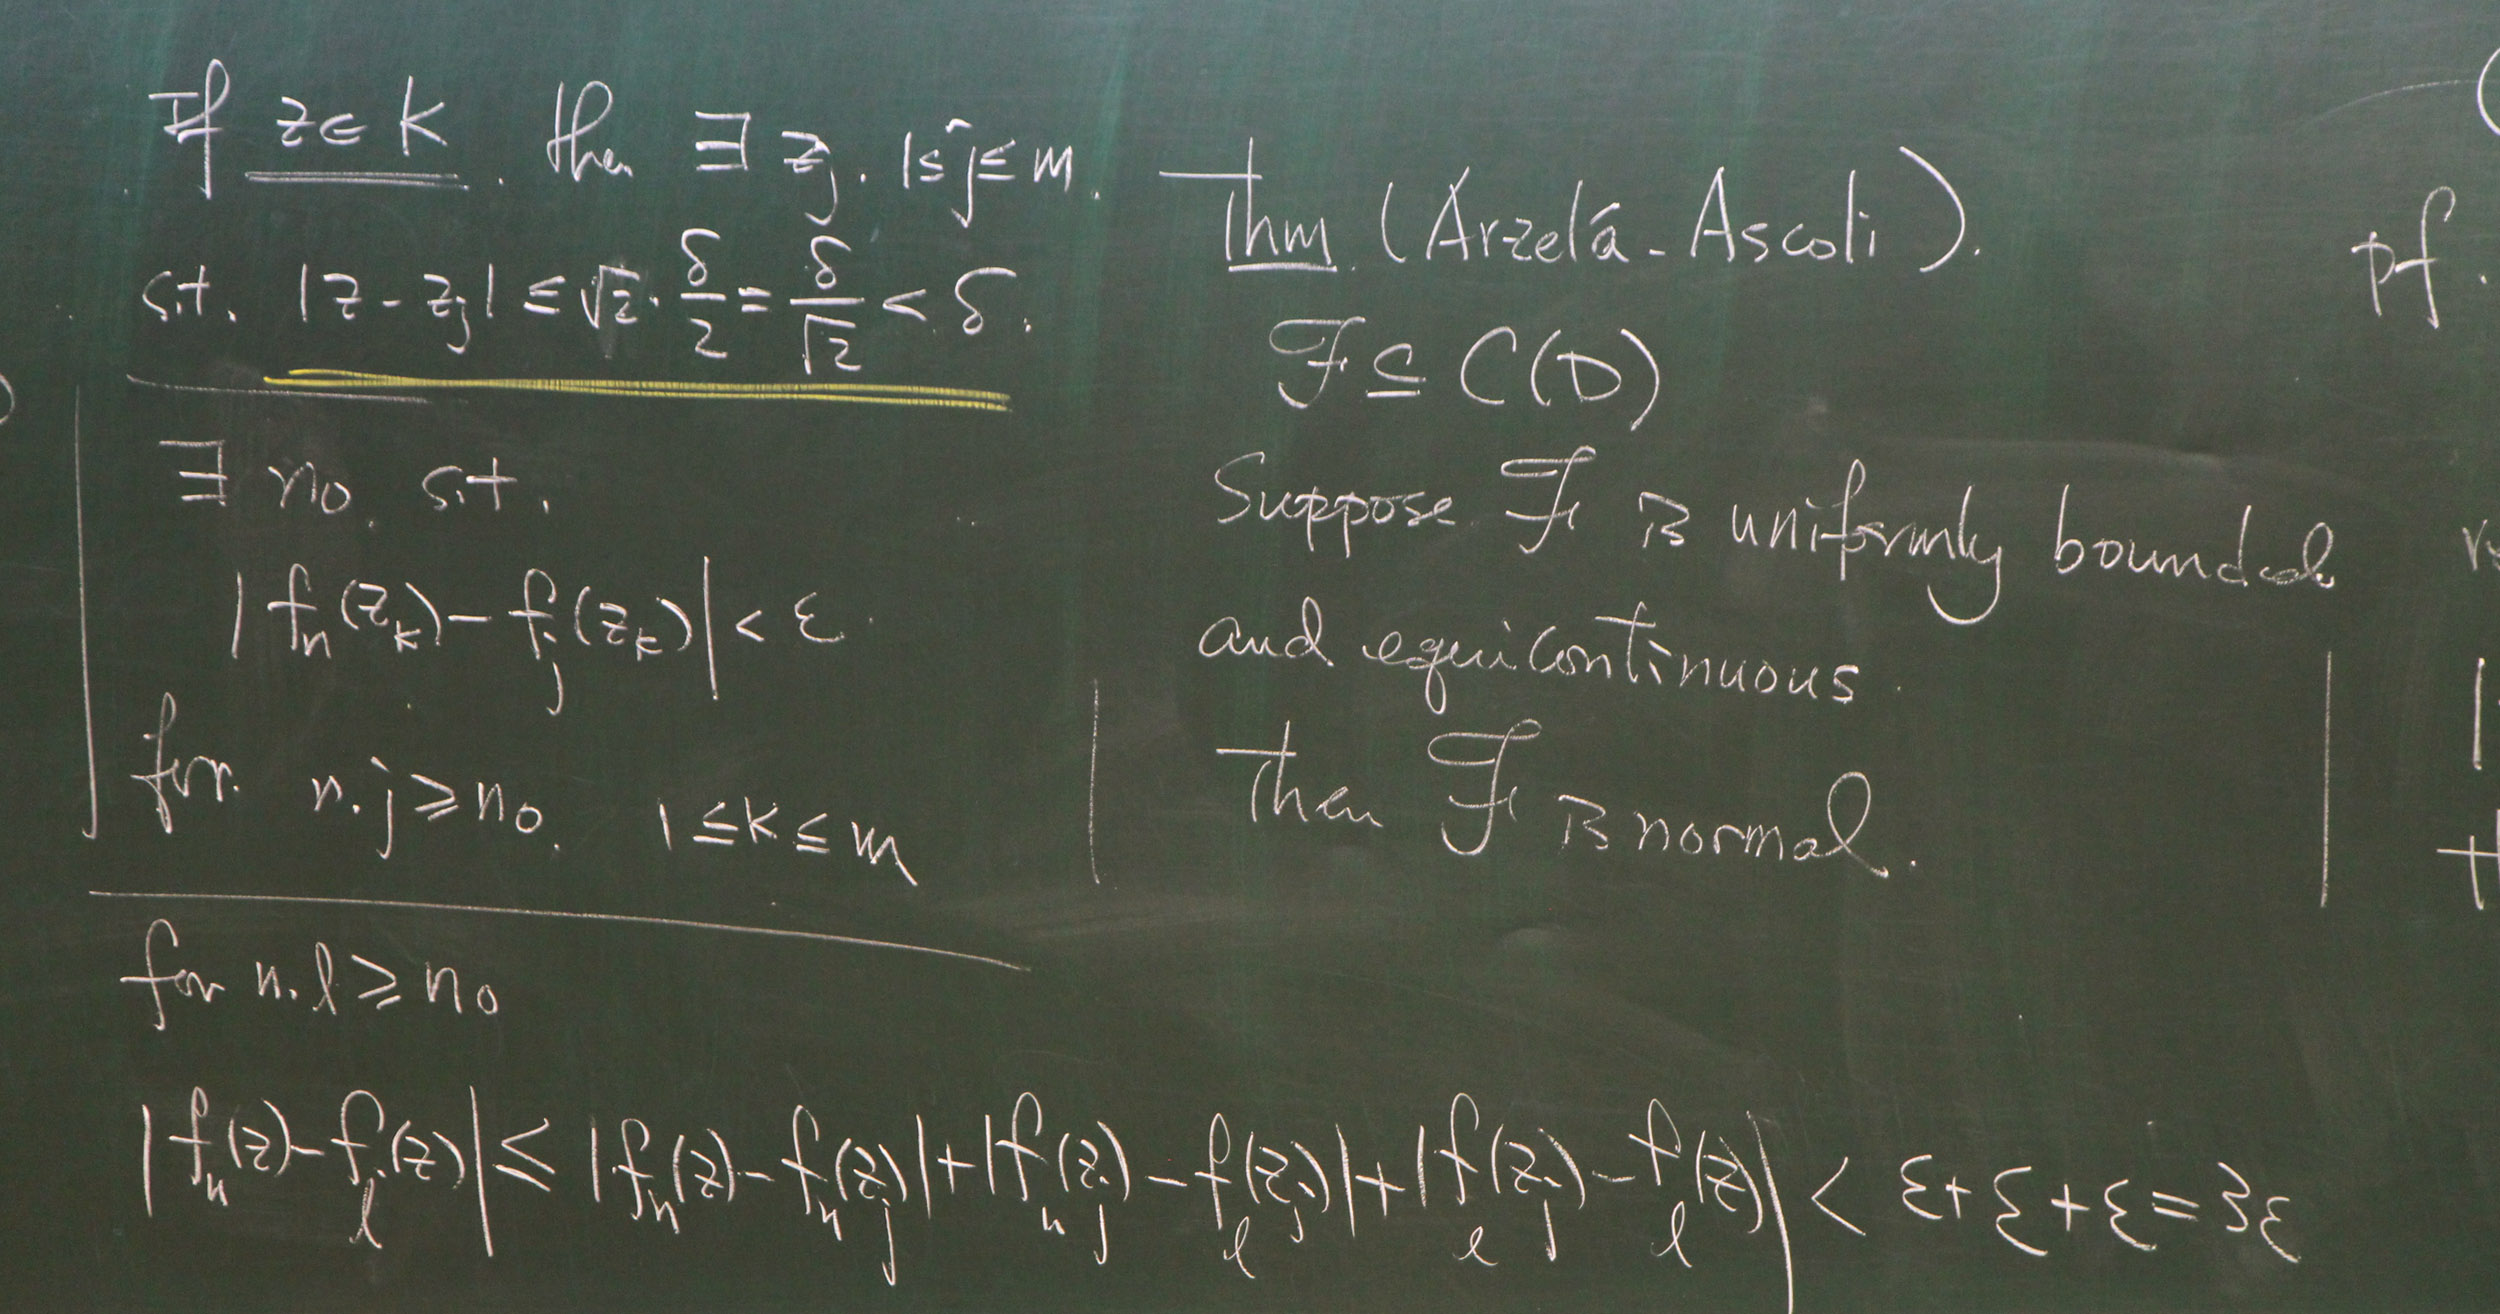 If z∈K. then ∃ z_j. 1≤j≤m.
s.t. |z - z_j| ≤ √2 · δ/2 = δ/√2 < δ.
∃ n_0. s.t.
|f_n(z_k) - f_j(z_k)| < ε.
for n.j ≥ n_0. 1 ≤ k ≤ m
for n.l ≥ n_0
|f_n(z) - f_l(z)| ≤ |f_n(z) - f_n(z_j)| + |f_n(z_j) - f_l(z_j)| + |f_l(z_j) - f_l(z)| < ε + ε + ε = 3ε
Thm. (Arzelá - Ascoli).
ℱ ⊆ C(D)
Suppose ℱ is uniformly bounded
and equicontinuous.
Then ℱ is normal.
pf.